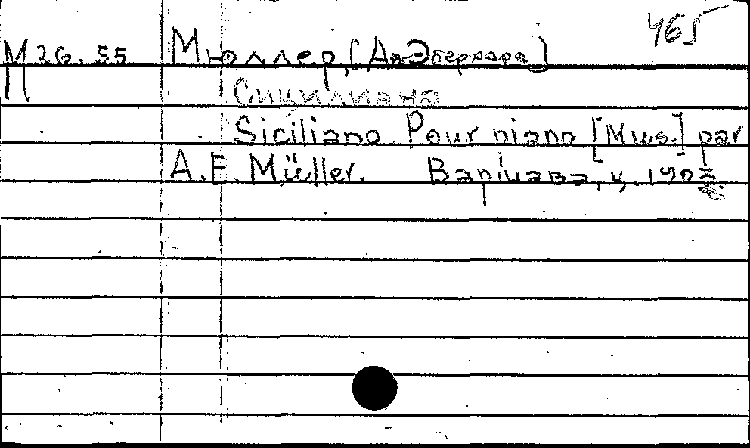 465
М 26.55 Мюллер, [А. Эберхард]
П
Сицилиана
Siciliano. Pour piano [Mus.] par
A.E. Müller. Варшава, ц. 190